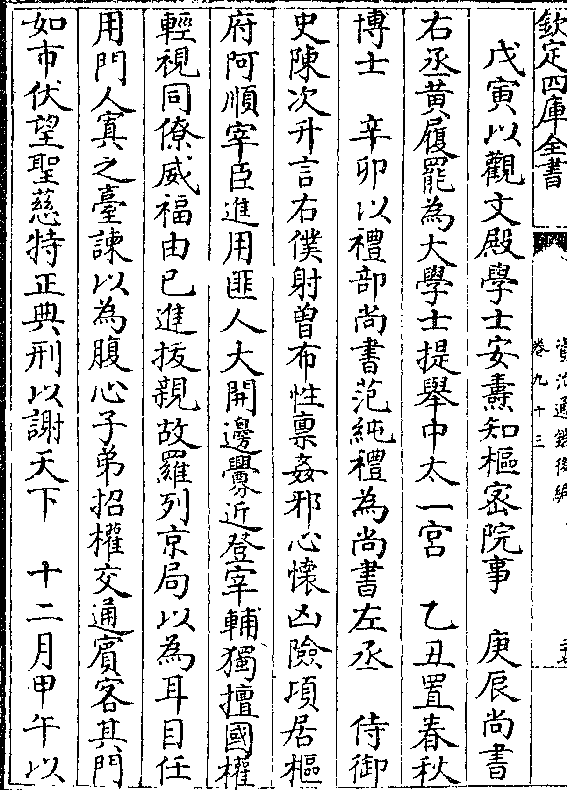 欽定四庫全書
資治通鑑後編
卷九十三
戊寅以觀文殿學士安燾知樞密院事　庚辰尚書
右丞黃履罷為大學士提舉中太一宮　乙丑置春秋
博士　辛卯以禮部尚書范純禮為尚書左丞　侍御
史陳次升言右僕射曾布性禀姦邪心懷凶險項居樞
府阿順宰臣進用匪人大開邊釁近登宰輔獨擅國權
輕視同僚威福由已進拔親故羅列京局以為耳目任
用門人寘之臺諫以為腹心子弟招權交通賓客其門
如市伏望聖慈特正典刑以謝天下　十二月甲午以